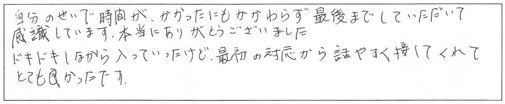 自分のせいで時間が、かかったにもかかわらず最後までしていただいて
感識しています。本当にありがとうございました
ドキドキしながら入っていったけど、最初の対応から話やすく接してくれて
とても良かったです。